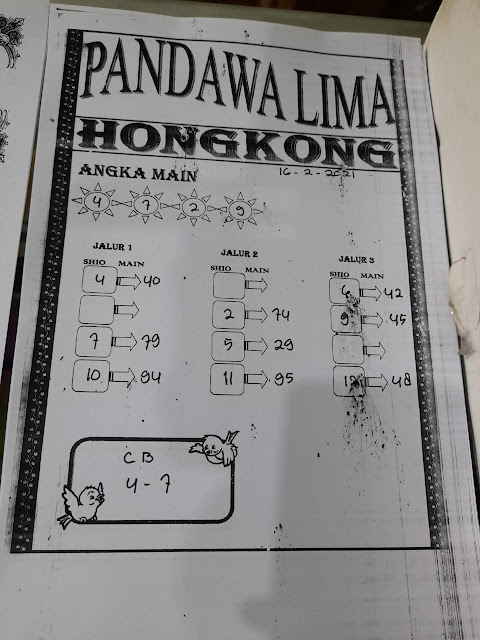 PANDAWA LIMA
HONGKONG
ANGKA MAIN
16-2-2021
4 7 2 9
JALUR 1
SHIO MAIN
4 40
7 79
10 94
JALUR 2
SHIO MAIN
2 74
5 29
11 95
JALUR 3
SHIO MAIN
6 42
9 45
12 48
CB
4-7